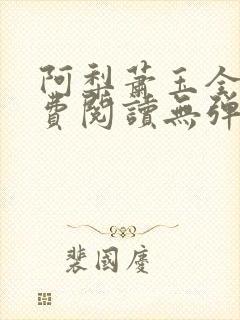 阿梨蕭玉全
費閱讀無彈
裴國慶